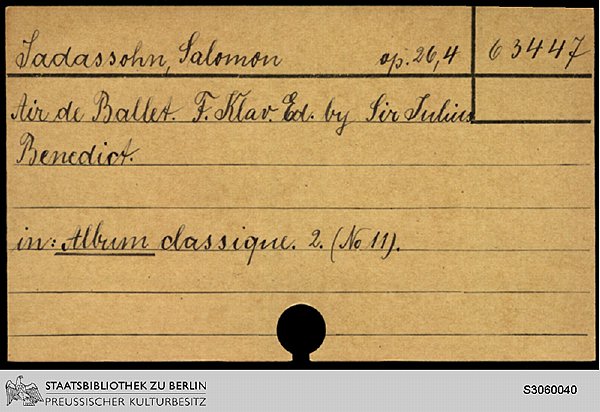 Jadassohn, Salomon op. 26,4 63447
Air de Ballet. F. Klav. Ed. by Sir Julius
Benedict.
in: Album classique. 2. (No 11).
STAATSBIBLIOTHEK ZU BERLIN
PREUSSISCHER KULTURBESITZ
S3060040